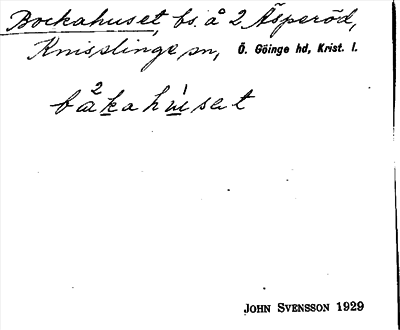 Bockahuset, bs. å 2 Äsperöd,
Knisslinge sn, Ö. Göinge hd, Krist. l.
bå2kahu̇sat
JOHN SVENSSON 1929